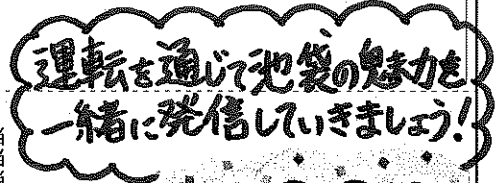 運転を通じて池袋の魅力を
一緒に発信していきましょう!